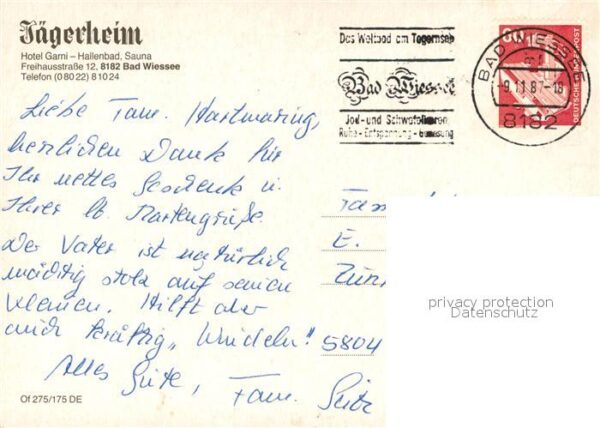 Jägerheim
Hotel Garni – Hallenbad, Sauna
Freihausstraße 12, 8182 Bad Wiessee
Telefon (0 80 22) 8 10 24
Das Weltbad am Tegernsee
Bad Wiessee
Jod- und Schwefelkuren
Ruhe - Entspannung - Genesung
60
DEUTSCHE BUNDESPOST
BAD WIESSEE
-9.11.87-18
8182
Liebe Fam. Hartmaring,
herzlichen Dank für
Ihr nettes Geschenk u.
Ihrer lb. Kartengrüße.
Der Vater ist natürlich
mächtig stolz auf seinen
Kleinen. Hilft aber
auch kräftig „Windeln"
Alles Gute, Fam. Seitz
Fam
E.
Zün
5804
privacy protection
Datenschutz
Of 275/175 DE